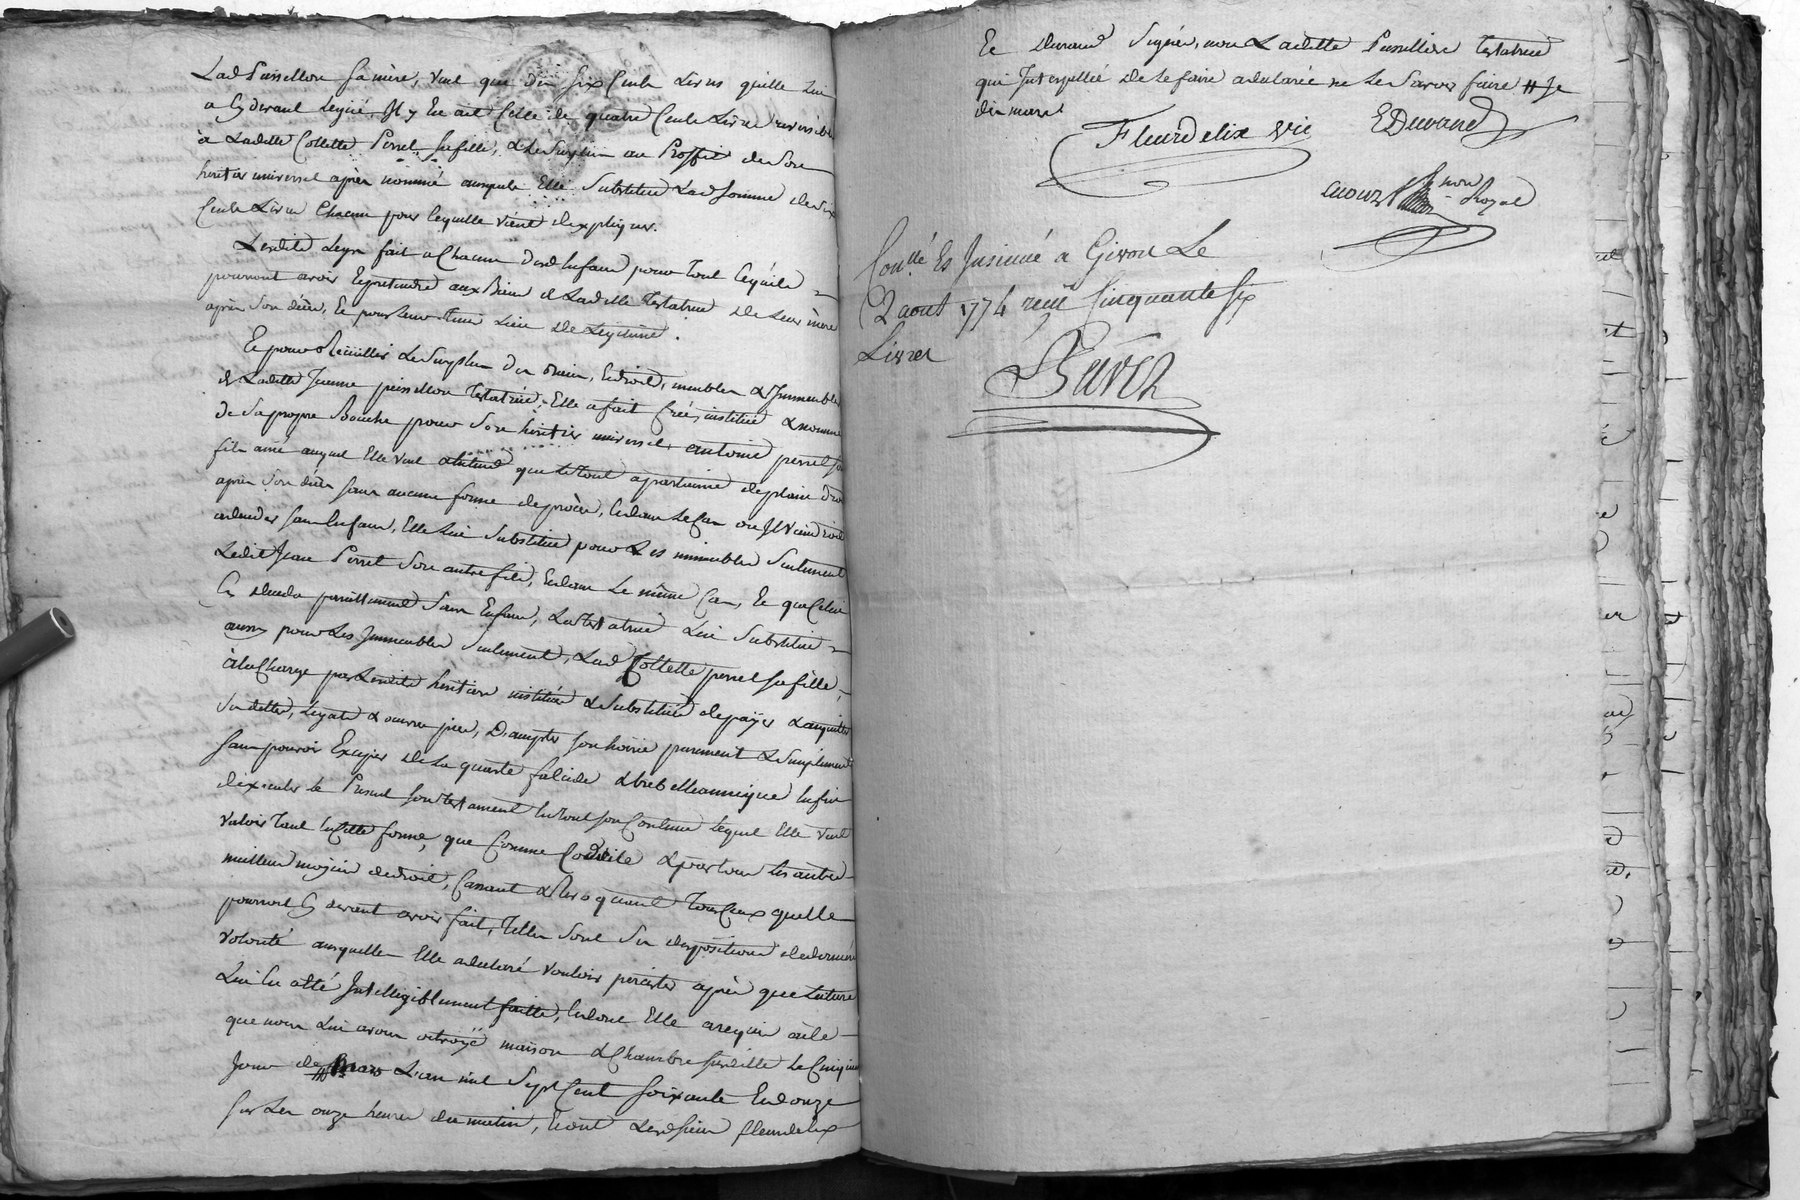 Lad Peissellon sa mère, veut que des six Cents Livres qu'elle lui
a Cy devant Legué, Il y En ait Celle de quatre Cents Livres reversible
à Ladette Collette Perret sa fille, & Le Surplus au Proffit de Son
heritier universel après nommé auxquels Elle Substitue Lad Somme de six
Cents Livres Chacun pour lequelle vient d'expliquer.
Lesdits Legs fait a Chacun desd Enfans pour Tout Ce qu'ils
pourront avoir Et pretendre aux Biens de Ladette Testatrice de Leur mère
après Son décès, Et pour Leur Tenir Lieu de Legitime.
Et pour Recüillir Le Surplus des Biens, Endroits, meubles & Immeubles
de Ladette Jeanne peissellon Testatrice, Elle a fait Créé, institué & nommé
de Sa propre Bouche pour Son heritier universel, antoine perret son
fils ainé auquel Elle veut & Entend que le Tout apartienne de plain droit
après Son décès sans aucune forme de procès, Endans Le Cas ou Il viendroit
a deceder sans Enfans, Elle Lui Substitue pour Les immeubles Seulement
Ledit Jean Perret Son autre fils, Endans Le même Cas, Et que Celui
Cy deceda pareillement Sans Enfans, La Testatrice Lui Substitue
aussy pour Les Immeubles Seulement, Lad Collette perret sa fille,
à la Charge par Lesdits heritiers institués & Substitués de payer & acquitter
Ses dettes, Legats & œuvres pies, D'accepter son hoirie purement & Simplement
sans pouvoir Exiger de La quarte falcidie & trebellianique Enfin
d'exécuter le Present son testament En tout son Contenu lequel Elle veut
valoir Tant En Cette forme, que Comme Codicile & par tous les autres
meilleurs moyens de droit, Cassant & Revoquant Tous Ceux qu'elle
pourroit Cy devant avoir fait, Telles Sont Ses dispositions de derniere
volonté auxquelles Elle a declaré vouloir persister après que Lecture
Lui En a été Intelligiblement faitte, Endont Elle a requis acte
que nous Lui avons octroyé maison & Chambre susditte Le Cinquieme
Jour de mars L'an mil Sept Cent soixante Et douze
sur Les onze heures du matin, Et ont Lesd sieurs fleurdelix
Et Durand Signés, non Ladette Peissellon Testatrice
qui Interpellée de Le faire a declarée ne Le Savoir faire # Je
dis mars
Fleurdelix Vic EDurand
not Royal
Con.llé Et Insinué a Givors Le
2 aout 1774 reçu Cinquante Six
Livres